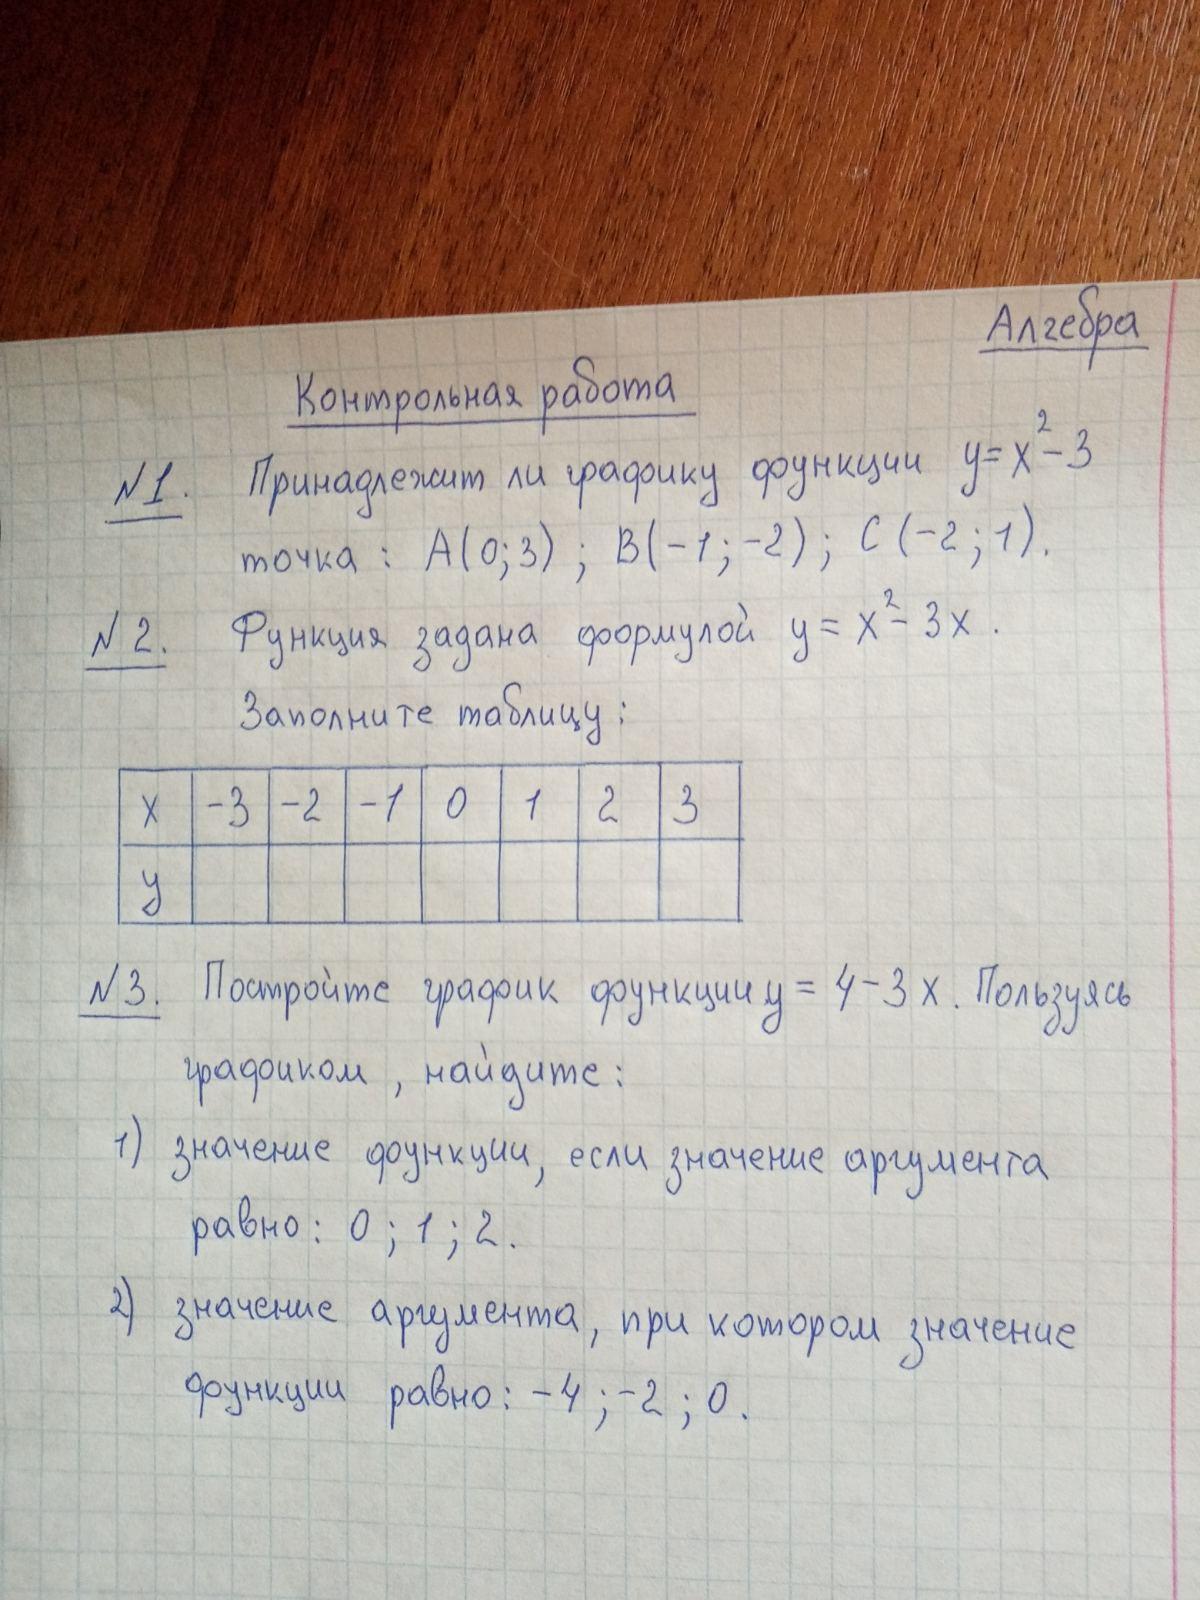 Алгебра
Контрольная работа
№1. Принадлежит ли графику функции y=x²-3
точка: A(0;3); B(-1;-2); C(-2;1).
№2. Функция задана формулой y=x²-3x.
Заполните таблицу:
x -3 -2 -1 0 1 2 3
y
№3. Постройте график функции y=4-3x. Пользуясь
графиком, найдите:
1) значение функции, если значение аргумента
равно: 0; 1; 2.
2) значение аргумента, при котором значение
функции равно: -4; -2; 0.